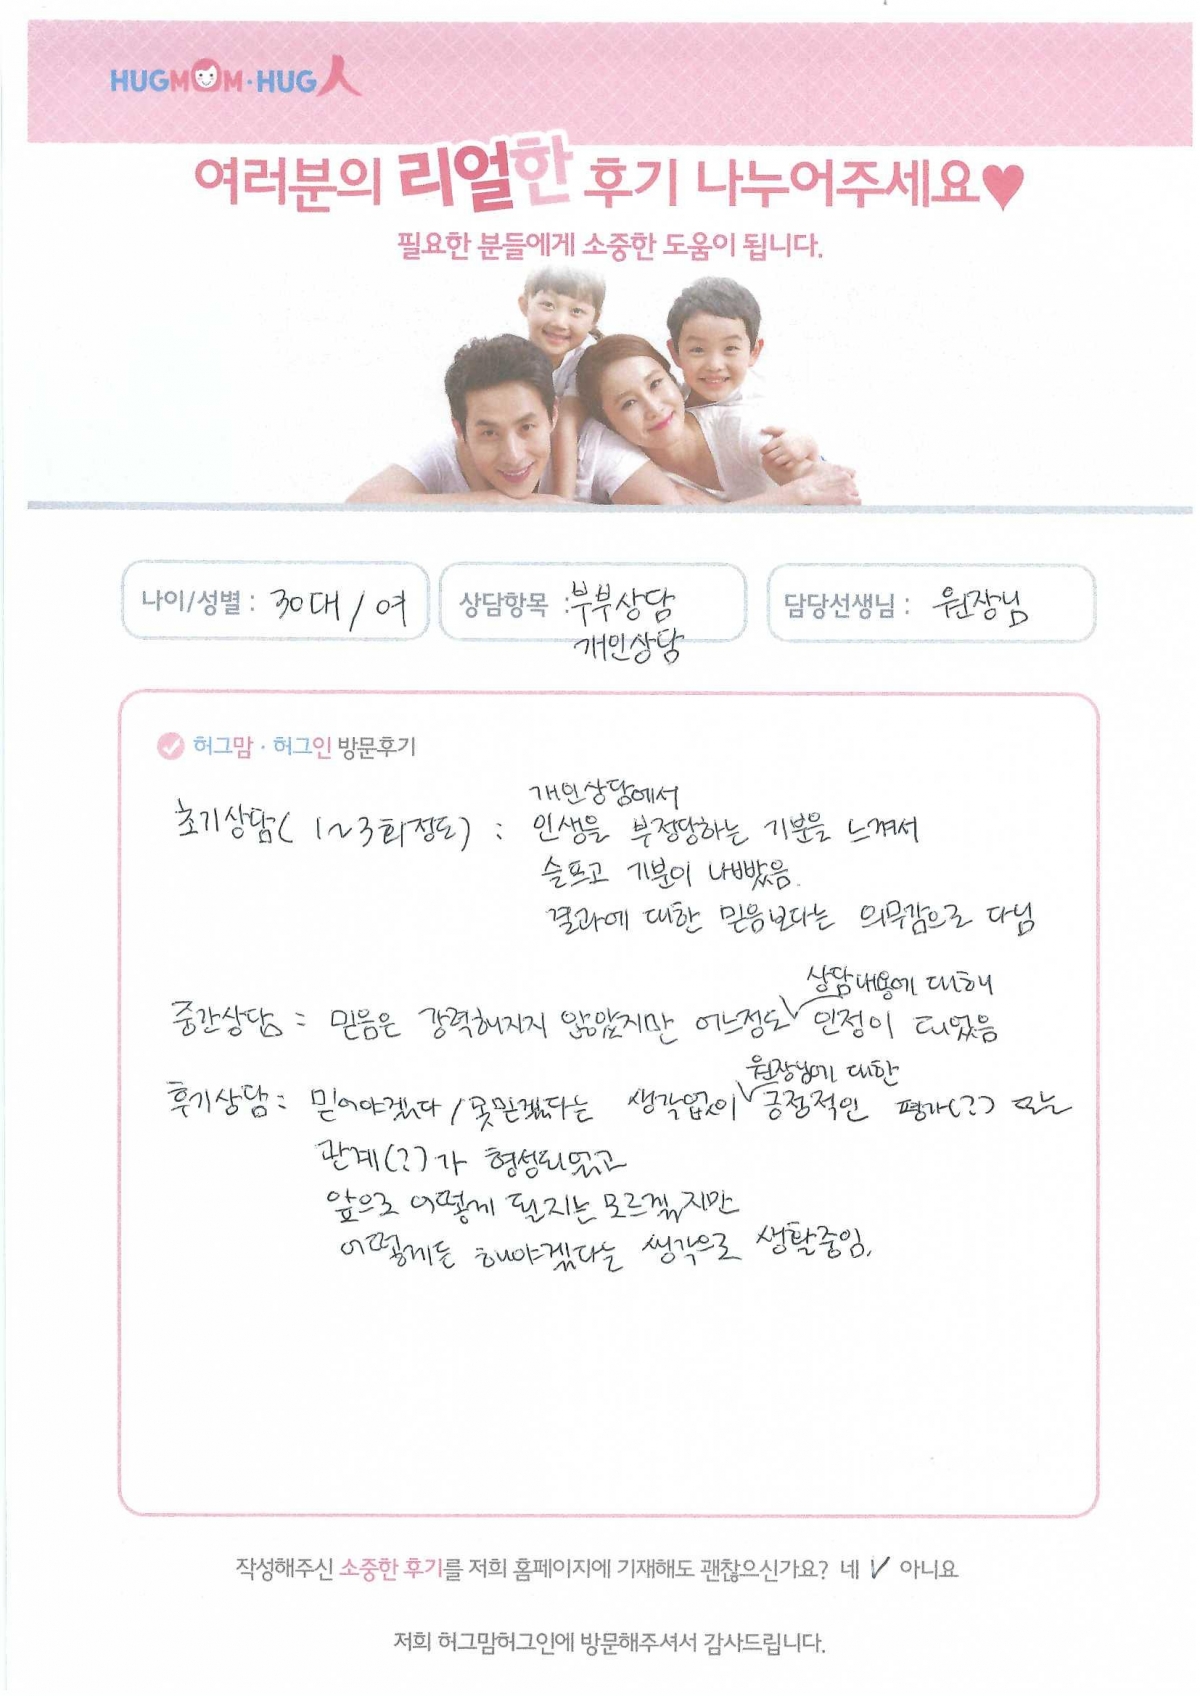 HUGMOM·HUG人
여러분의 리얼한 후기 나누어주세요♥
필요한 분들에게 소중한 도움이 됩니다.
나이/성별 : 30대 / 여
상담항목 : 부부상담
개인상담
담당선생님 : 원장님
허그맘 · 허그인 방문후기
개인상담에서
초기상담( 1~3회정도) : 인생을 부정당하는 기분을 느껴서
슬프고 기분이 나빴음.
결과에 대한 믿음보다는 의무감으로 다님
상담내용에 대해
중간상담 = 믿음은 강력해지지 않았지만 어느정도 인정이 되었음
원장님에 대한
후기상담 = 믿어야겠다 / 못믿겠다는 생각없이 긍정적인 평가(?) 또는
관계(?)가 형성되었고
앞으로 어떻게 될지는 모르겠지만
어떻게든 해야겠다는 생각으로 생활중임.
작성해주신 소중한 후기를 저희 홈페이지에 기재해도 괜찮으신가요? 네 ✓ 아니요
저희 허그맘허그인에 방문해주셔서 감사드립니다.